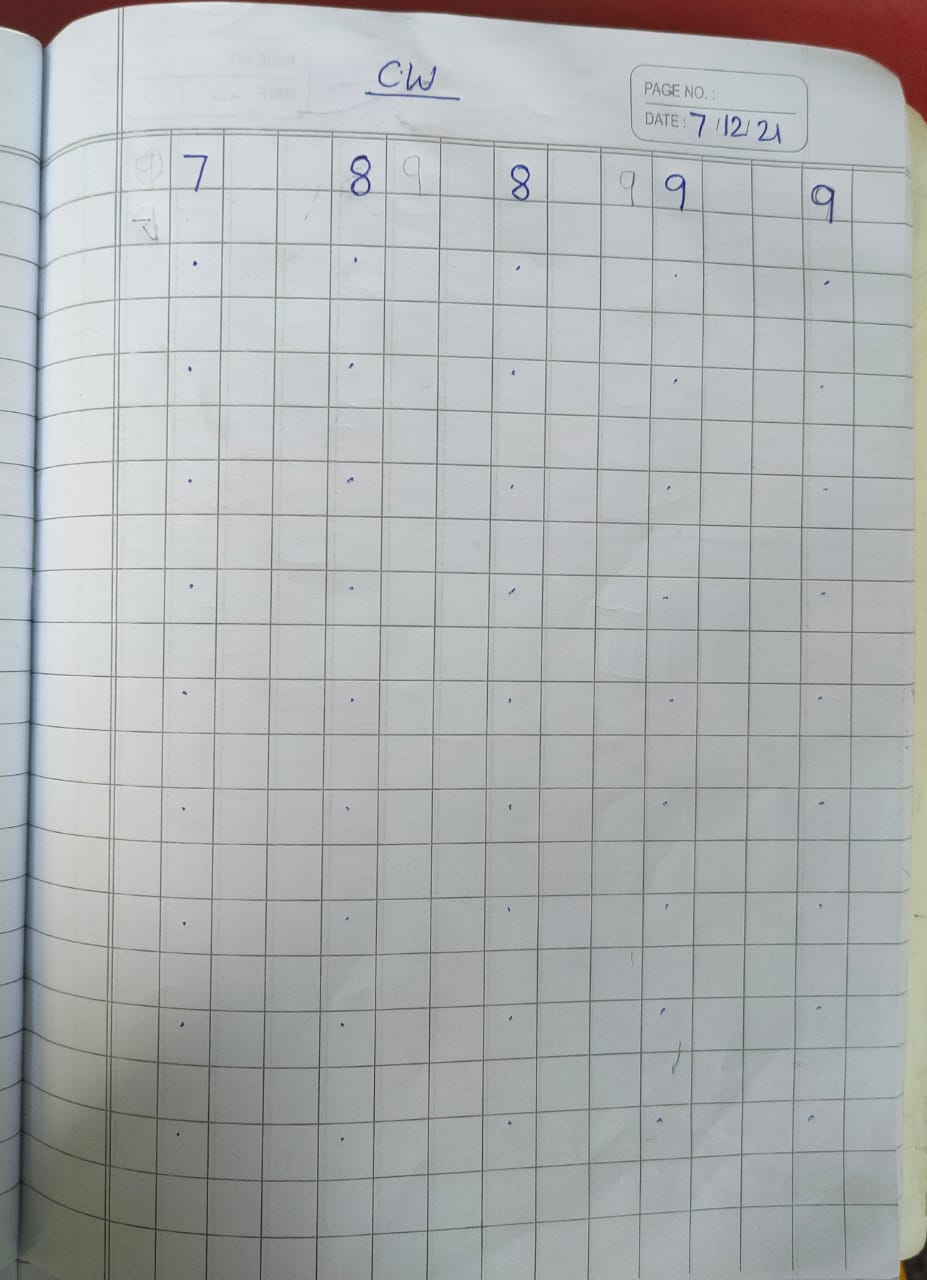 CW
PAGE NO. :
DATE : 7/12/21
7 8 9 8 9 9 9